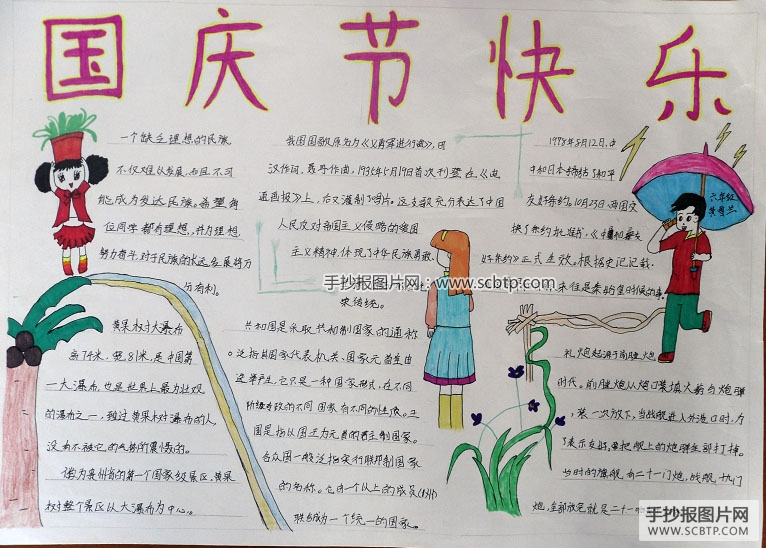 国庆节快乐
一个缺乏理想的民族
不仅难以发展,而且不可
能成为发达民族。希望每
位同学都有理想,并为理想
努力奋斗,对于民族的长远发展将万
分有利。
我国国歌原名为《义勇军进行曲》,田
汉作词,聂耳作曲,1935年5月19日首次刊登在《电
通画报》上,后又灌制了唱片。这支歌充分表达了中国
人民反对帝国主义侵略的爱国
主义精神,体现了中华民族勇敢
1978年8月12日,中
友好条约。10月23日,两国交
换了条约批准书,《
好条约》正式生效。根据史记记载
六年级
手抄报图片网:www.scbtp.com
黄果树大瀑布
高74米,宽81米,是中国第
一大瀑布,也是世界上最为壮观
的瀑布之一,到过黄果树瀑布的人
没有不被它的
的第一个国家级景区,黄果
树整个景区以大瀑布为中心。
共和国是采取共和制国家的通称
泛指其国家代表机关、国家元首是由
选举产生,它只是一种国家形式,在不同
阶级专政的不同国家有不同的性质。王
国是指以国王为元首的君主制国家。
合众国一般泛指实行联邦制国家
的名称。它由个以上的成员
联合成为一个统一的国家。
礼炮起源于前膛炮
时代。前膛炮从炮口装填火药与炮弹
装一次放下,当战舰进入外港口时,为
了表示友好,要把舰上的炮弹全部打掉。
当时的旗舰,有二十一门炮,战舰
炮,全部放完就是二十一
手抄报图片网
WWW.SCBTP.COM